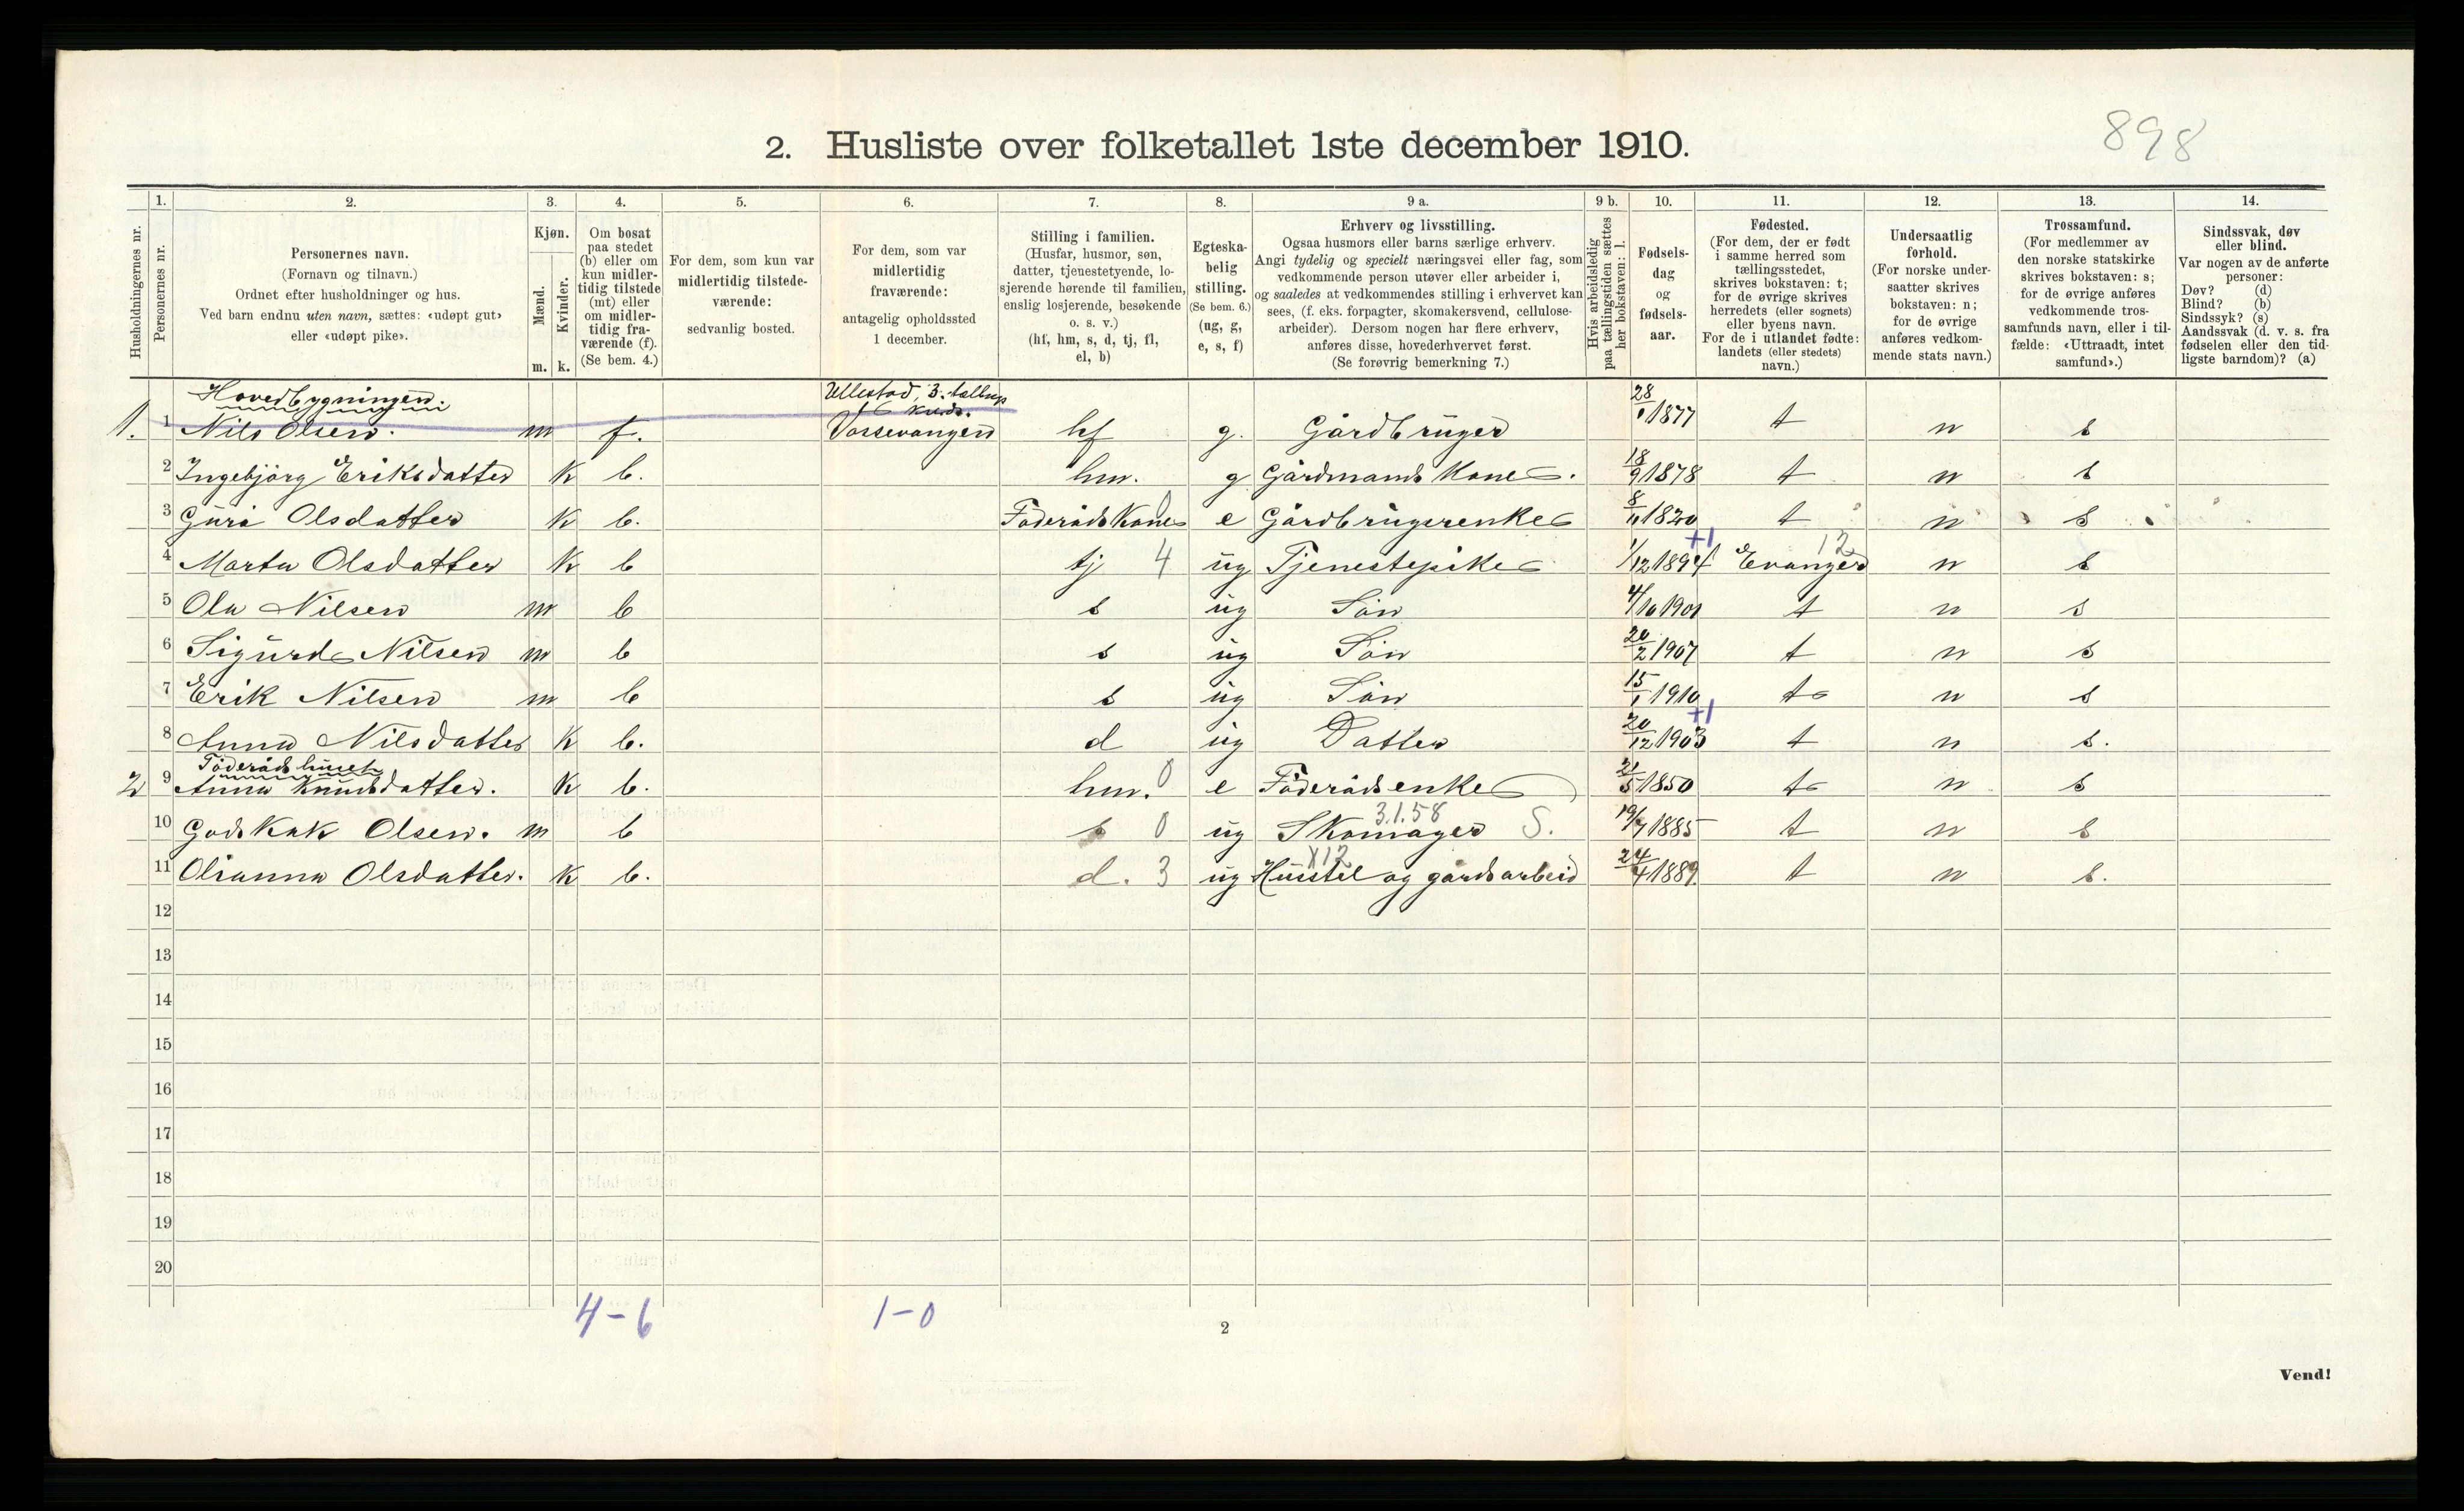 898
2. Husliste over folketallet 1ste december 1910.
Husholdningernes nr.
1. Personernes nr.
2. Personernes navn. (Fornavn og tilnavn.) Ordnet efter husholdninger og hus. Ved barn endnu uten navn, sættes: «udøpt gut» eller «udøpt pike».
3. Kjøn. Mænd. m. Kvinder. k.
4. Om bosat paa stedet (b) eller om kun midlertidig tilstede (mt) eller om midlertidig fraværende (f). (Se bem. 4.)
5. For dem, som kun var midlertidig tilstedeværende: sedvanlig bosted.
6. For dem, som var midlertidig fraværende: antagelig opholdssted 1 december.
7. Stilling i familien. (Husfar, husmor, søn, datter, tjenestetyende, losjerende hørende til familien, enslig losjerende, besøkende o. s. v.) (hf, hm, s, d, tj, fl, el, b)
8. Egteskabelig stilling. (Se bem. 6.) (ug, g, e, s, f)
9 a. Erhverv og livsstilling. Ogsaa husmors eller barns særlige erhverv. Angi tydelig og specielt næringsvei eller fag, som vedkommende person utøver eller arbeider i, og saaledes at vedkommendes stilling i erhvervet kan sees, (f. eks. forpagter, skomakersvend, cellulosearbeider). Dersom nogen har flere erhverv, anføres disse, hovederhvervet først. (Se forøvrig bemerkning 7.)
9 b. Hvis arbeidsledig paa tællingstiden sættes her bokstaven: l.
10. Fødselsdag og fødselsaar.
11. Fødested. (For dem, der er født i samme herred som tællingsstedet, skrives bokstaven: t; for de øvrige skrives herredets (eller sognets) eller byens navn. For de i utlandet fødte: landets (eller stedets) navn.)
12. Undersaatlig forhold. (For norske undersaatter skrives bokstaven: n; for de øvrige anføres vedkommende stats navn.)
13. Trossamfund. (For medlemmer av den norske statskirke skrives bokstaven: s; for de øvrige anføres vedkommende trossamfunds navn, eller i tilfælde: «Uttraadt, intet samfund».)
14. Sindssvak, døv eller blind. Var nogen av de anførte personer: Døv? (d) Blind? (b) Sindssyk? (s) Aandssvak (d. v. s. fra fødselen eller den tidligste barndom)? (a)
Hovedbygningen. Ullestad, 3. tællings kreds.
1. 1 Nils Olsen. m f. Vossevangen hf g. Gårdbruger 28/1 1877 t n s
2 Ingebjörg Eriksdatter k b. hm. g Gårdmands Kone. 18/9 1878 t n s
3 Guri Olsdatter k b. Föderåds Kone 0 e Gårdbrugerenke 8/11 1820 t n s
4 Marta Olsdatter k b tj 4 ug Tjenestepike 1/12 1894 +1 Evanger 12 n s
5 Ola Nilsen m b s ug Sön 4/10 1901 t n s
6 Sigurd Nilsen m b s ug Sön 20/2 1907 t n s
7 Erik Nilsen m b s ug Sön 15/1 1910 t n s
8 Anna Nilsdatter k b. d ug Datter 20/12 1903 +1 t n s.
Föderådshuset
2 9 Anna Knudsdatter. k b. hm. 0 e Föderådsenke 21/5 1850 t n s
10 Godskalk Olsen. m b s 0 ug Skomager 3.1.58 S. 19/7 1885 t n s
11 Olianna Olsdatter. k b. d. 3 ug Husstel og gårdsarbeid X12 24/4 1889 t n s.
12
13
14
15
16
17
18
19
20
4-6 1-0
2
Vend!